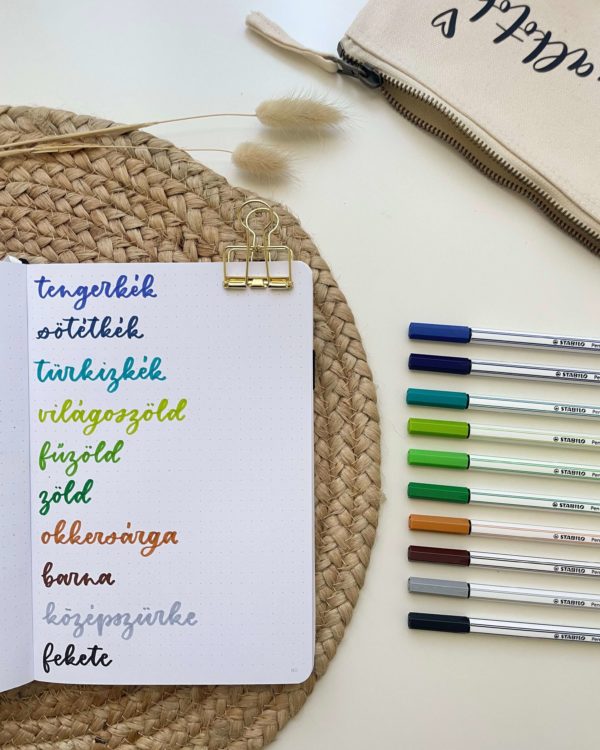 tengerkék
sötétkék
türkizkék
világoszöld
fűzöld
zöld
okkersárga
barna
középszürke
fekete
STABILO Pen
STABILO Pen
STABILO Pen
STABILO Pen
STABILO Pen
STABILO Pen
STABILO Pen
STABILO Pen
STABILO Pen
STABILO Pen